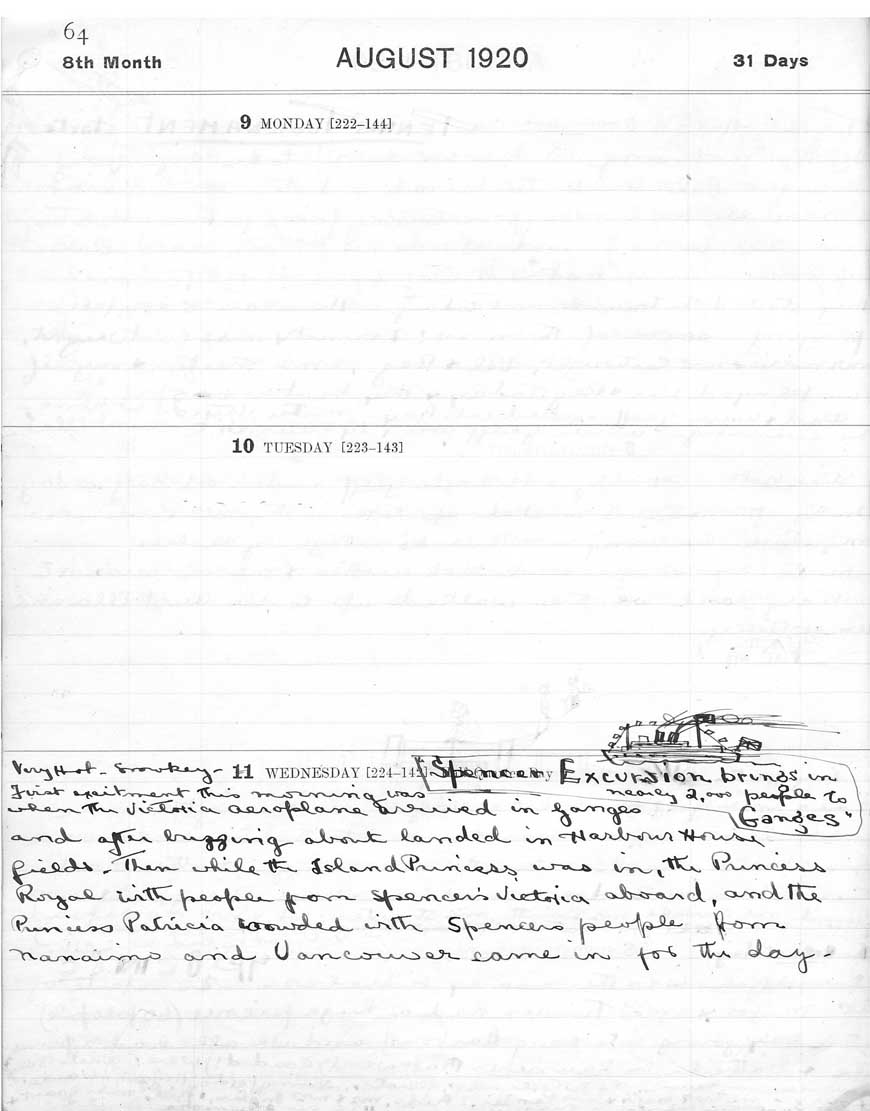 64
8th Month
AUGUST 1920
31 Days
9 MONDAY [222–144]
10 TUESDAY [223–143]
Very Hot - Smokey -
11 WEDNESDAY [224–142]
"Spencer Excursion brings in
nearly 2,000 people to
Ganges"
First exitment this morning was
when the Victoria aeroplane arrived in Ganges
and after buzzing about landed in Harbour House
fields - Then while the Island Princess was in, the Princess
Royal with people from Spencer's Victoria aboard, and the
Princess Patricia crowded with Spencers people from
Nanaimo and Vancouver came in for the day -